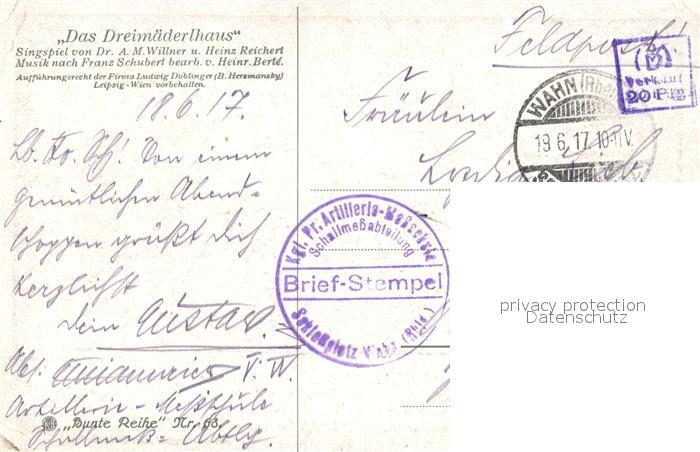 „Das Dreimäderlhaus"
Singspiel von Dr. A. M. Willner u. Heinz Reichert
Musik nach Franz Schubert bearb. v. Heinr. Berté.
Aufführungsrecht der Firma Ludwig Doblinger (B. Herzmansky)
Leipzig - Wien vorbehalten.
18.6.17.
Von einem
gemütlichen Abend-
schoppen grüßt Dich
herzlichst
Dein Gustav.
Abs.
Artillerie-Meßschule
Schallmeß-Abtlg.
„Bunte Reihe" Nr. 68.
Feldpost!
Fräulein
WAHN (Rhein
19 6. 17. 10-11V.
(B)
Verkauf
20 Pfg
Kgl. Pr. Artillerie-Messchule
Schallmeßabteilung
Brief-Stempel
Schießplatz Wahn (Rhld.)
privacy protection
Datenschutz